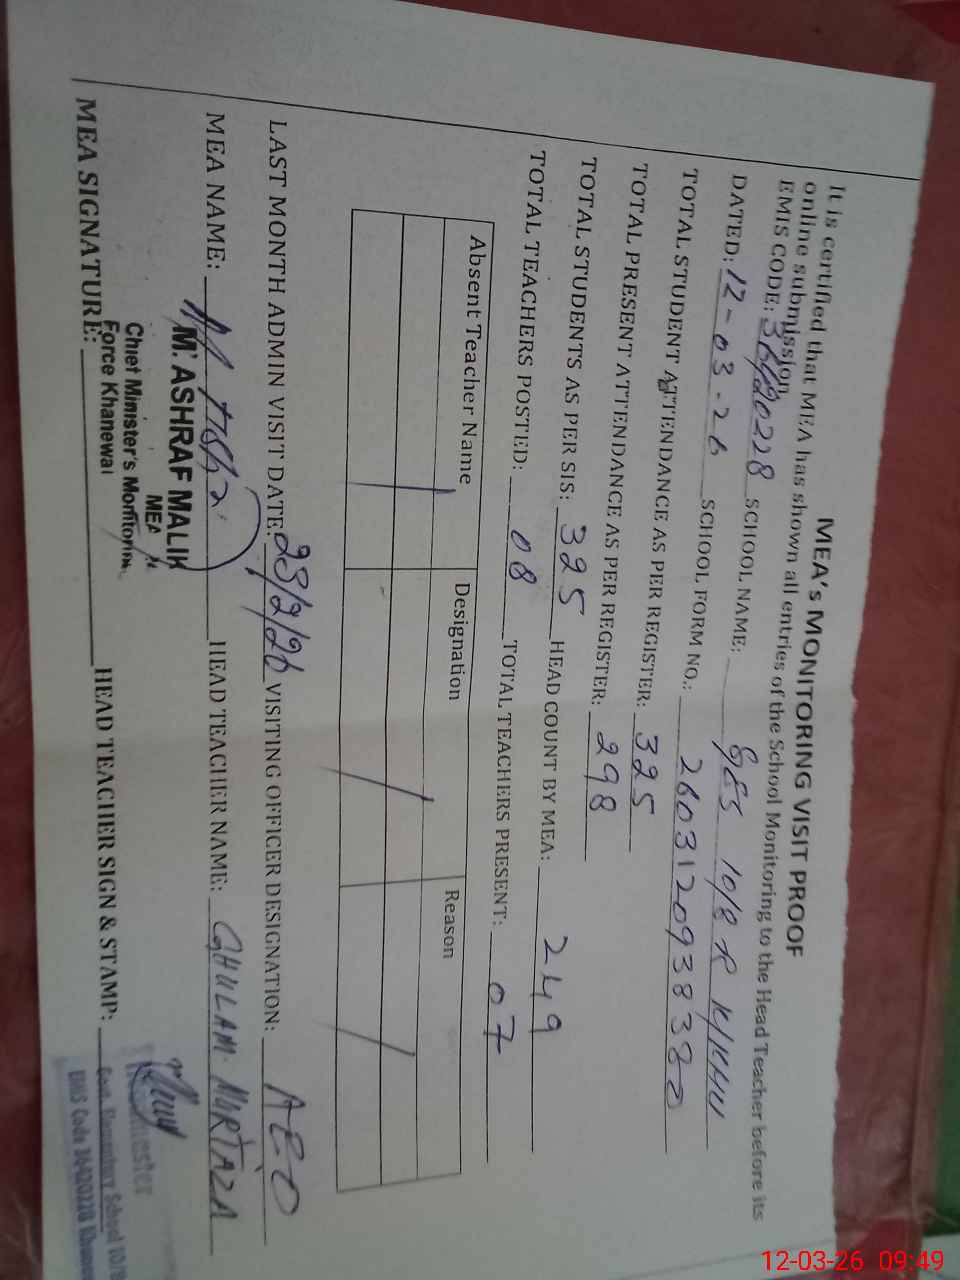 MEA's MONITORING VISIT PROOF
It is certified that MEA has shown all entries of the School Monitoring to the Head Teacher before its
online submission.
EMIS CODE: 36420228 SCHOOL NAME: GES 10/8 R K/KHU
DATED: 12-03-26 SCHOOL FORM NO.: 2603120938380
TOTAL STUDENT ATTENDANCE AS PER REGISTER: 325
TOTAL PRESENT ATTENDANCE AS PER REGISTER: 298
TOTAL STUDENTS AS PER SIS: 325 HEAD COUNT BY MEA: 249
TOTAL TEACHERS POSTED: 08 TOTAL TEACHERS PRESENT: 07
Absent Teacher Name Designation Reason
LAST MONTH ADMIN VISIT DATE: 23/2/26 VISITING OFFICER DESIGNATION: AEO
MEA NAME: HEAD TEACHER NAME: GHULAM MURTAZA
M. ASHRAF MALIK
MEA
Chief Minister's Monitoring
Force Khanewal
MEA SIGNATURE: HEAD TEACHER SIGN & STAMP:
Gov. Elementary School 10/8
EMIS Code 36420228
12-03-26 09:49